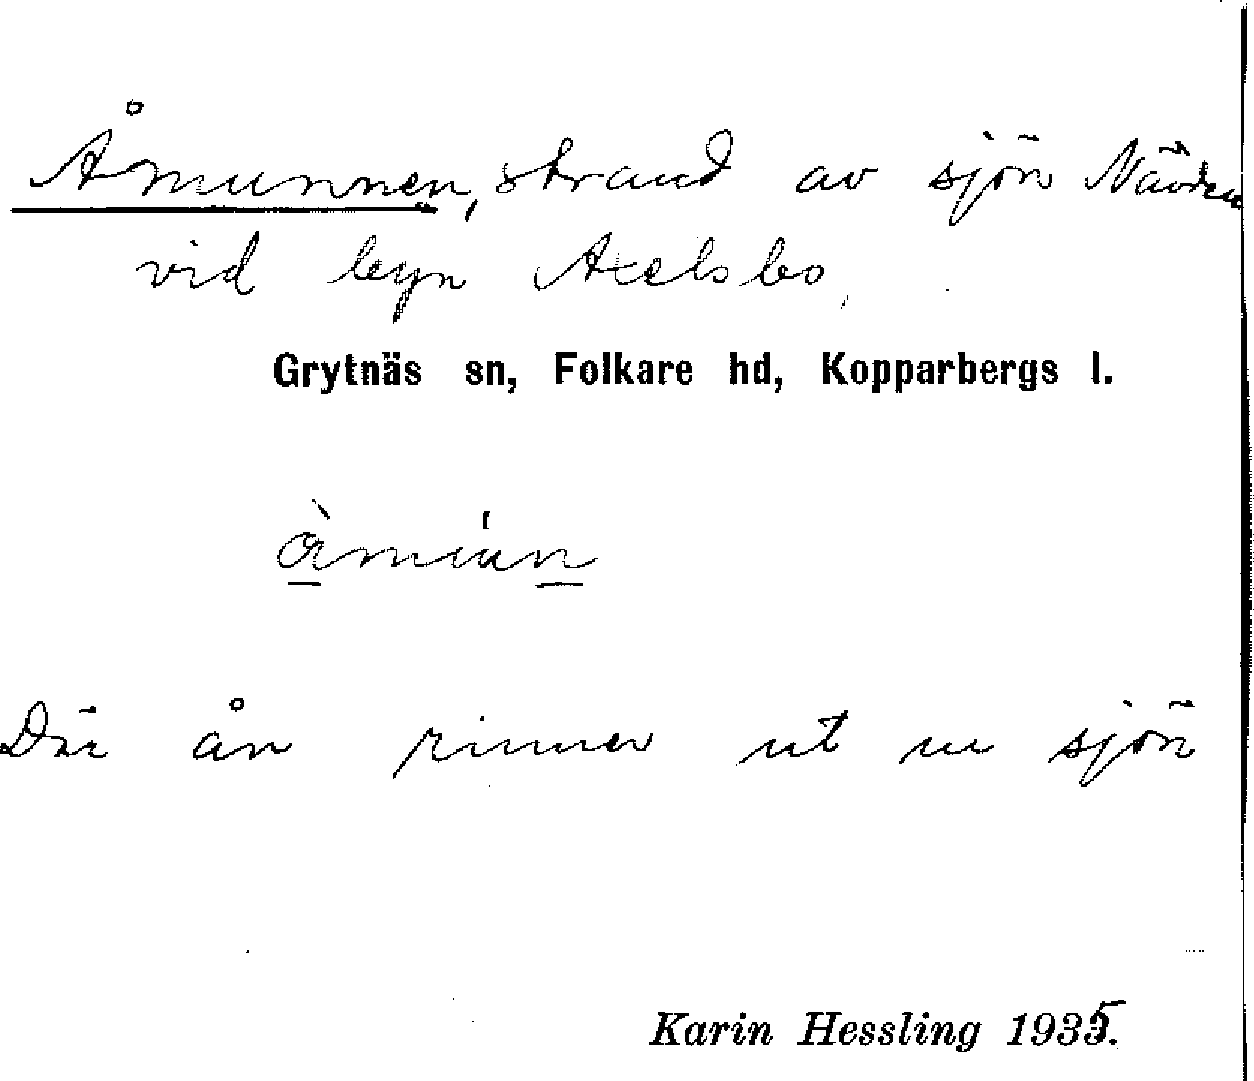 Åmunnen, strand av sjön Nävden
vid byn Axelsbo,
Grytnäs sn, Folkare hd, Kopparbergs l.
Där ån rinner ut ur sjön
Karin Hessling 1935.